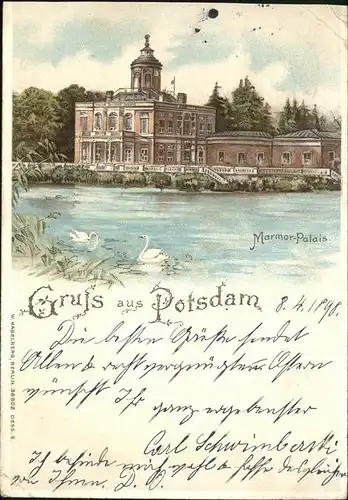 Marmor-Palais
Gruss aus Potsdam
8. 4. 1898.
Die besten Grüße sendet
Allen & recht vergnügtes Ostern
wünscht Ihr
ganz ergebenster
Carl Schwimberski
Ich befinde mich wohl & hoffe desgleichen
von Ihnen. D. O.
W. HAGELBERG, BERLIN